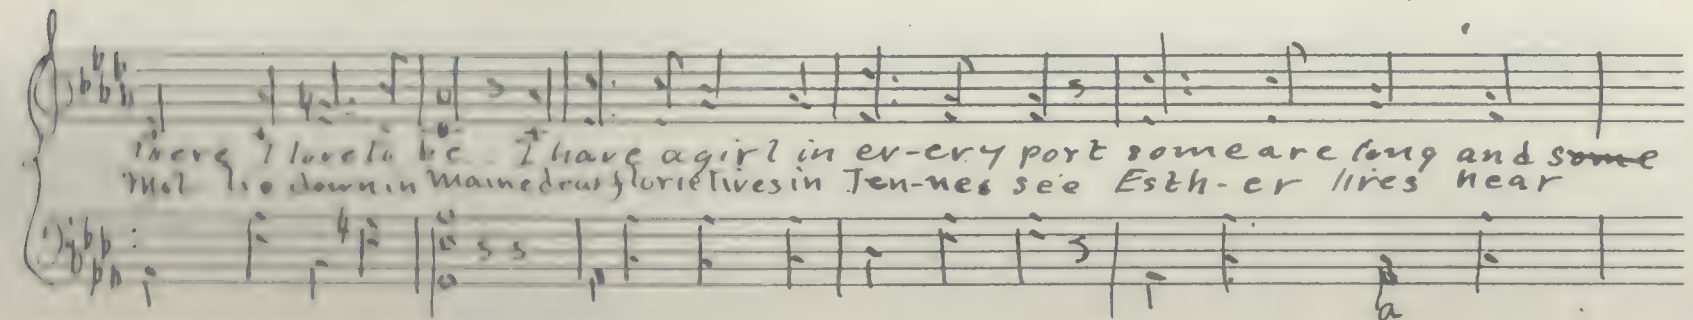 there I love to be I have a girl in ev-ery port some are long and some
down in Maine lives in Ten-nes see Esth-er lives near
a